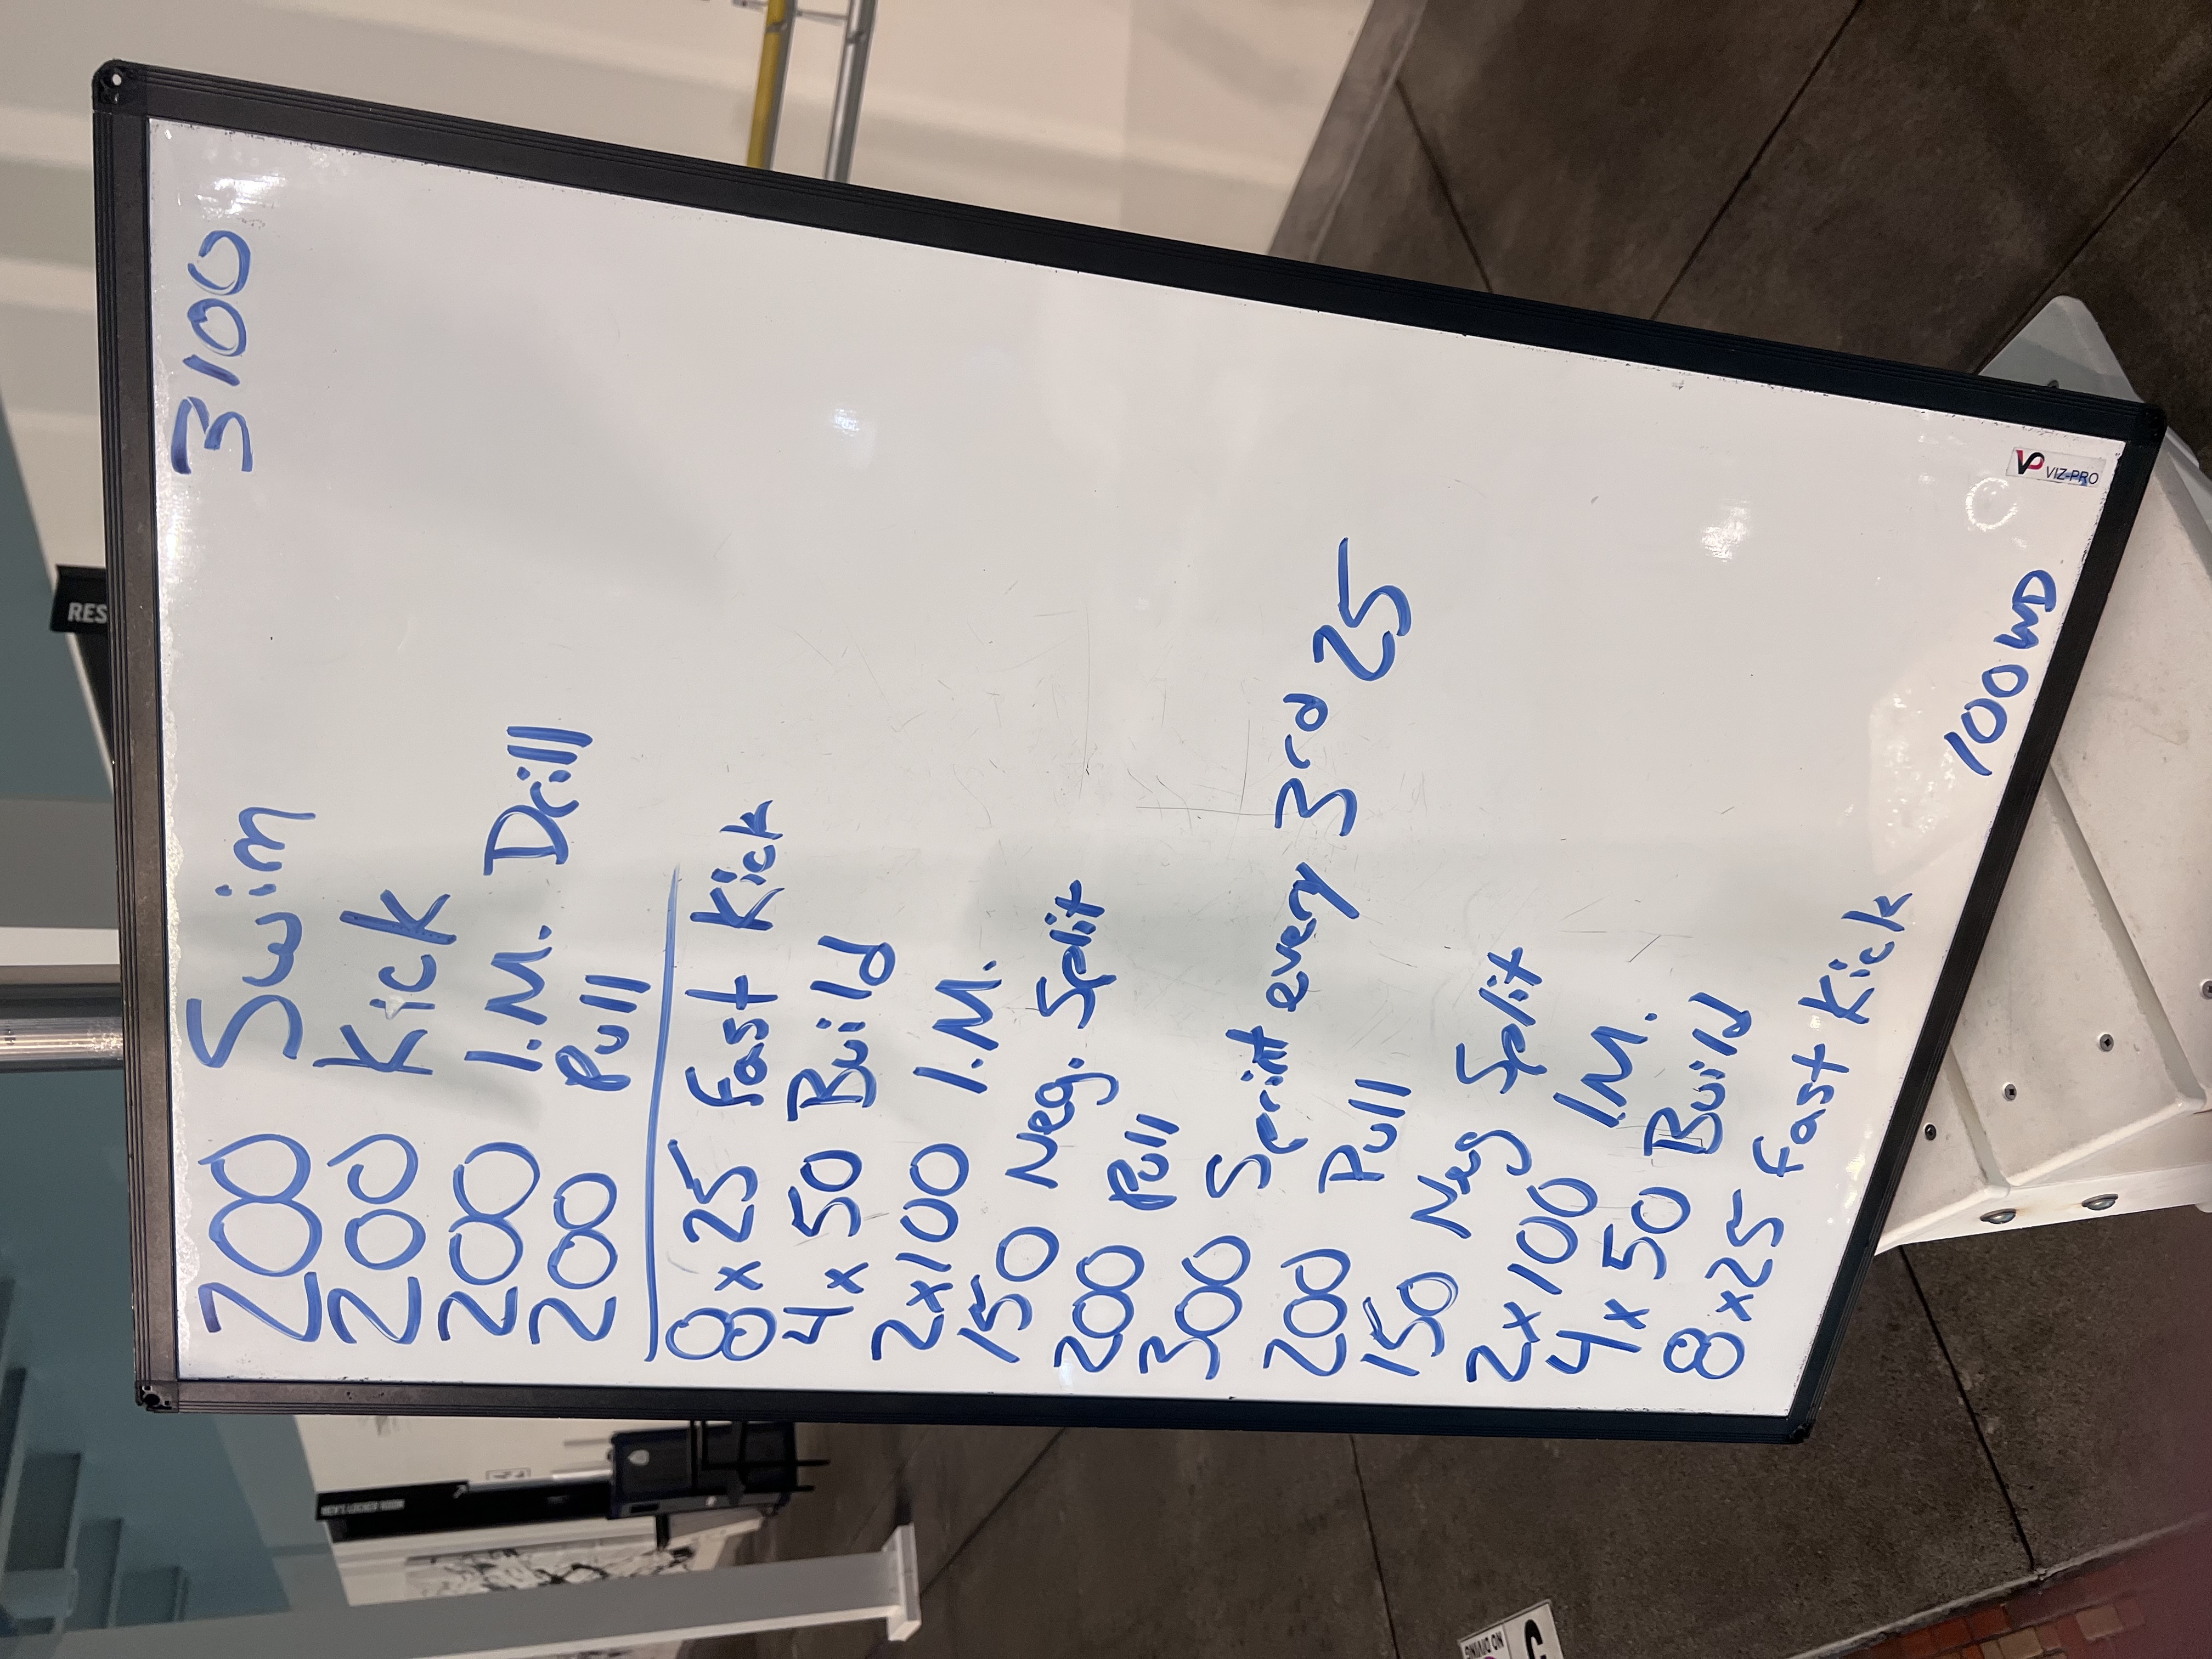 3100
200 Swim
200 Kick
200 I.M. Drill
200 Pull
8 x 25 Fast Kick
4 x 50 Build
2x100 I.M.
150 Neg. Split
200 Pull
300 Sprint every 3rd 25
200 Pull
150 Neg Split
2x100 I.M.
4 x 50 Build
8 x25 Fast Kick
100 WD
VIZ-PRO
RES
MEN'S LOCKER ROOM
NO DIVING